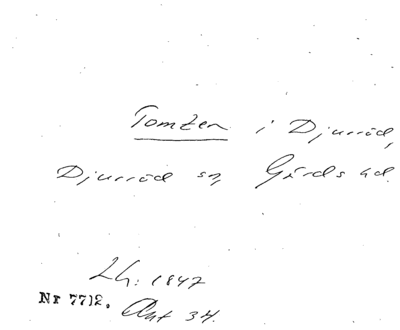 Tomten i Djurröd,
Djurröd sn, Gärds hd.
Lh: 1847
Nr 7712. Akt 34.